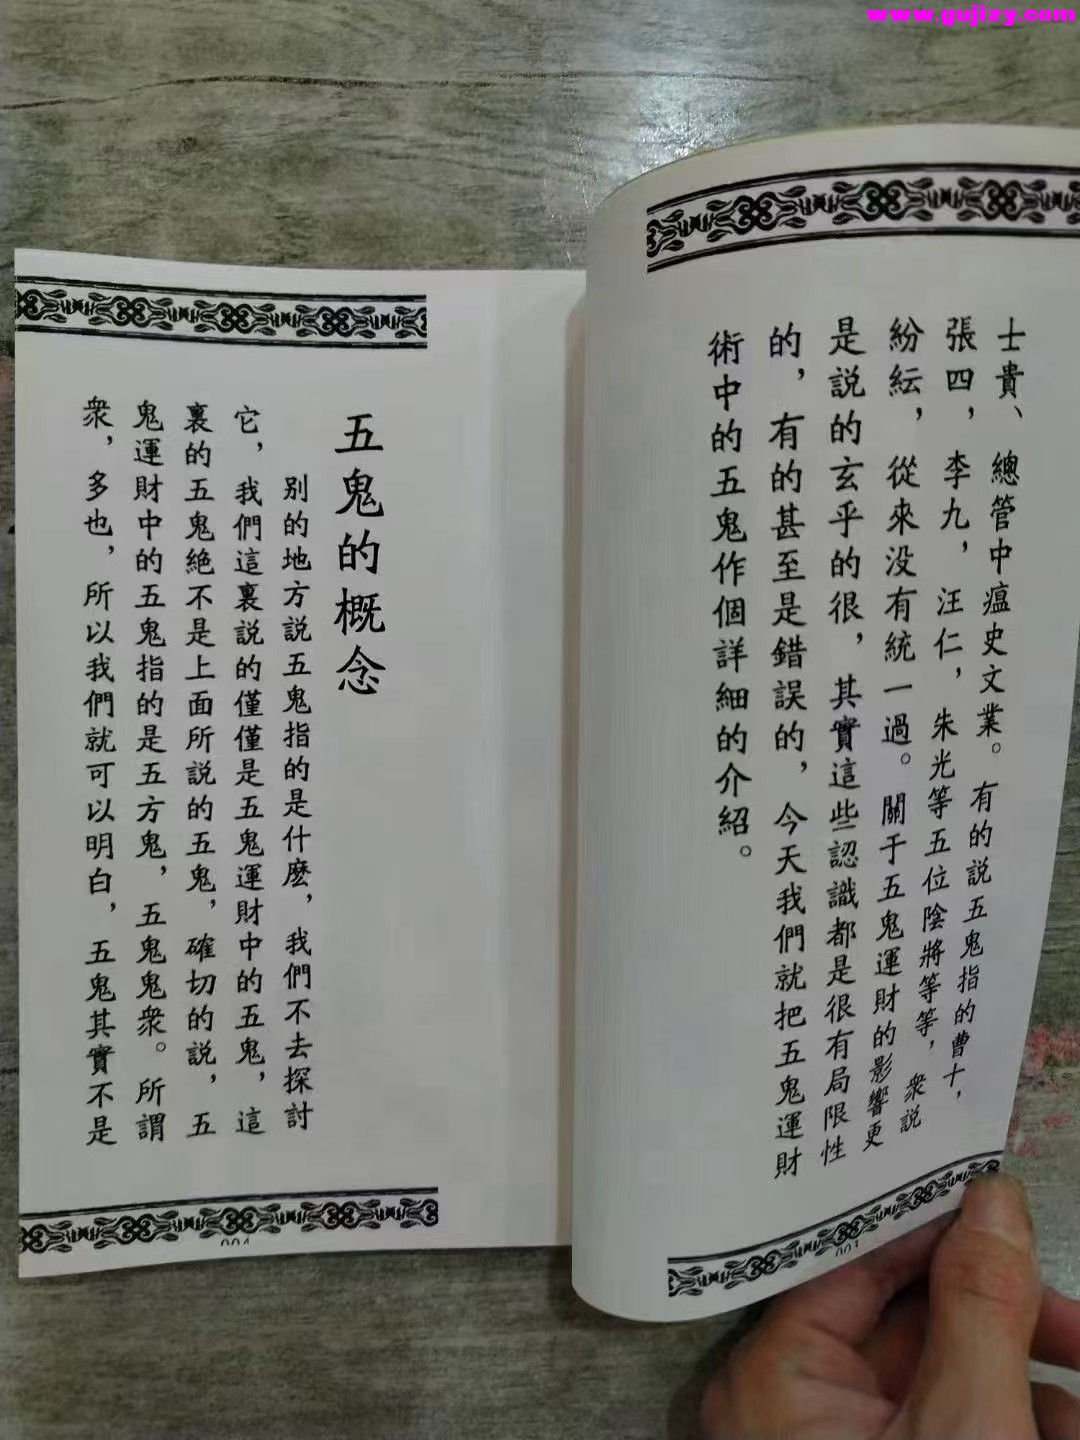 www.gujizy.com
士貴、總管中瘟史文業。有的説五鬼指的曹十，
張四，李九，汪仁，朱光等五位陰將等等，衆説
紛紜，從來没有統一過。關于五鬼運財的影響更
是説的玄乎的很，其實這些認識都是很有局限性
的，有的甚至是錯誤的，今天我們就把五鬼運財
術中的五鬼作個詳細的介紹。
003
五鬼的概念
别的地方説五鬼指的是什麽，我們不去探討
它，我們這裏説的僅僅是五鬼運財中的五鬼，這
裏的五鬼絶不是上面所説的五鬼，確切的説，五
鬼運財中的五鬼指的是五方鬼，五鬼鬼衆。所謂
衆，多也，所以我們就可以明白，五鬼其實不是
004